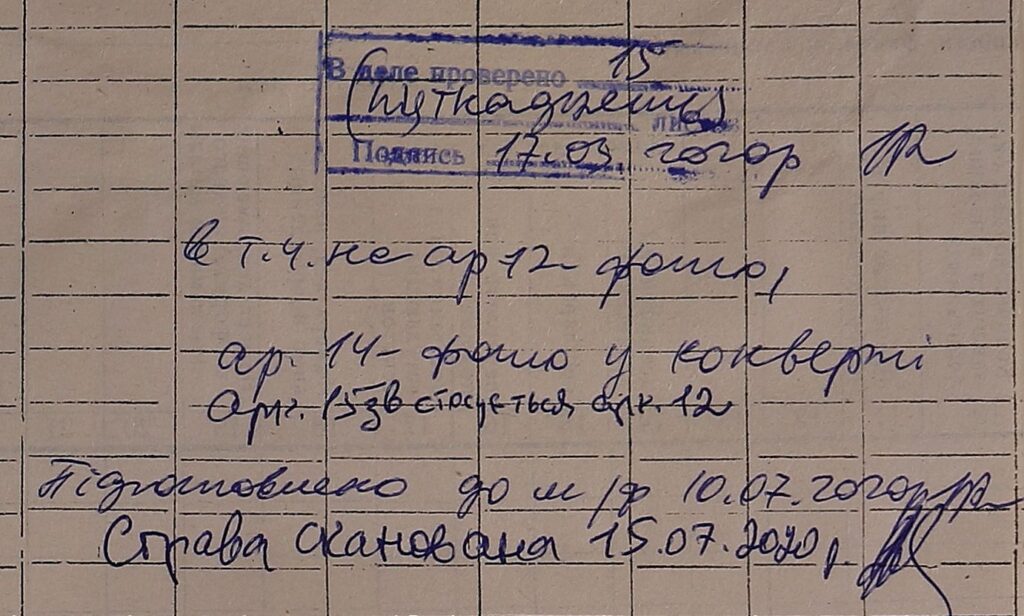 В деле проверено 15
(пʼятнадцять)
листов
Подпись 17.03.2020р
в т.ч. на ар 12 фото,
ар. 14 - фото у конверті
Арк. 15зв стосується арк. 12
Підготовлено до м/ф 10.07.2020р
Справа сканована 15.07.2020р.